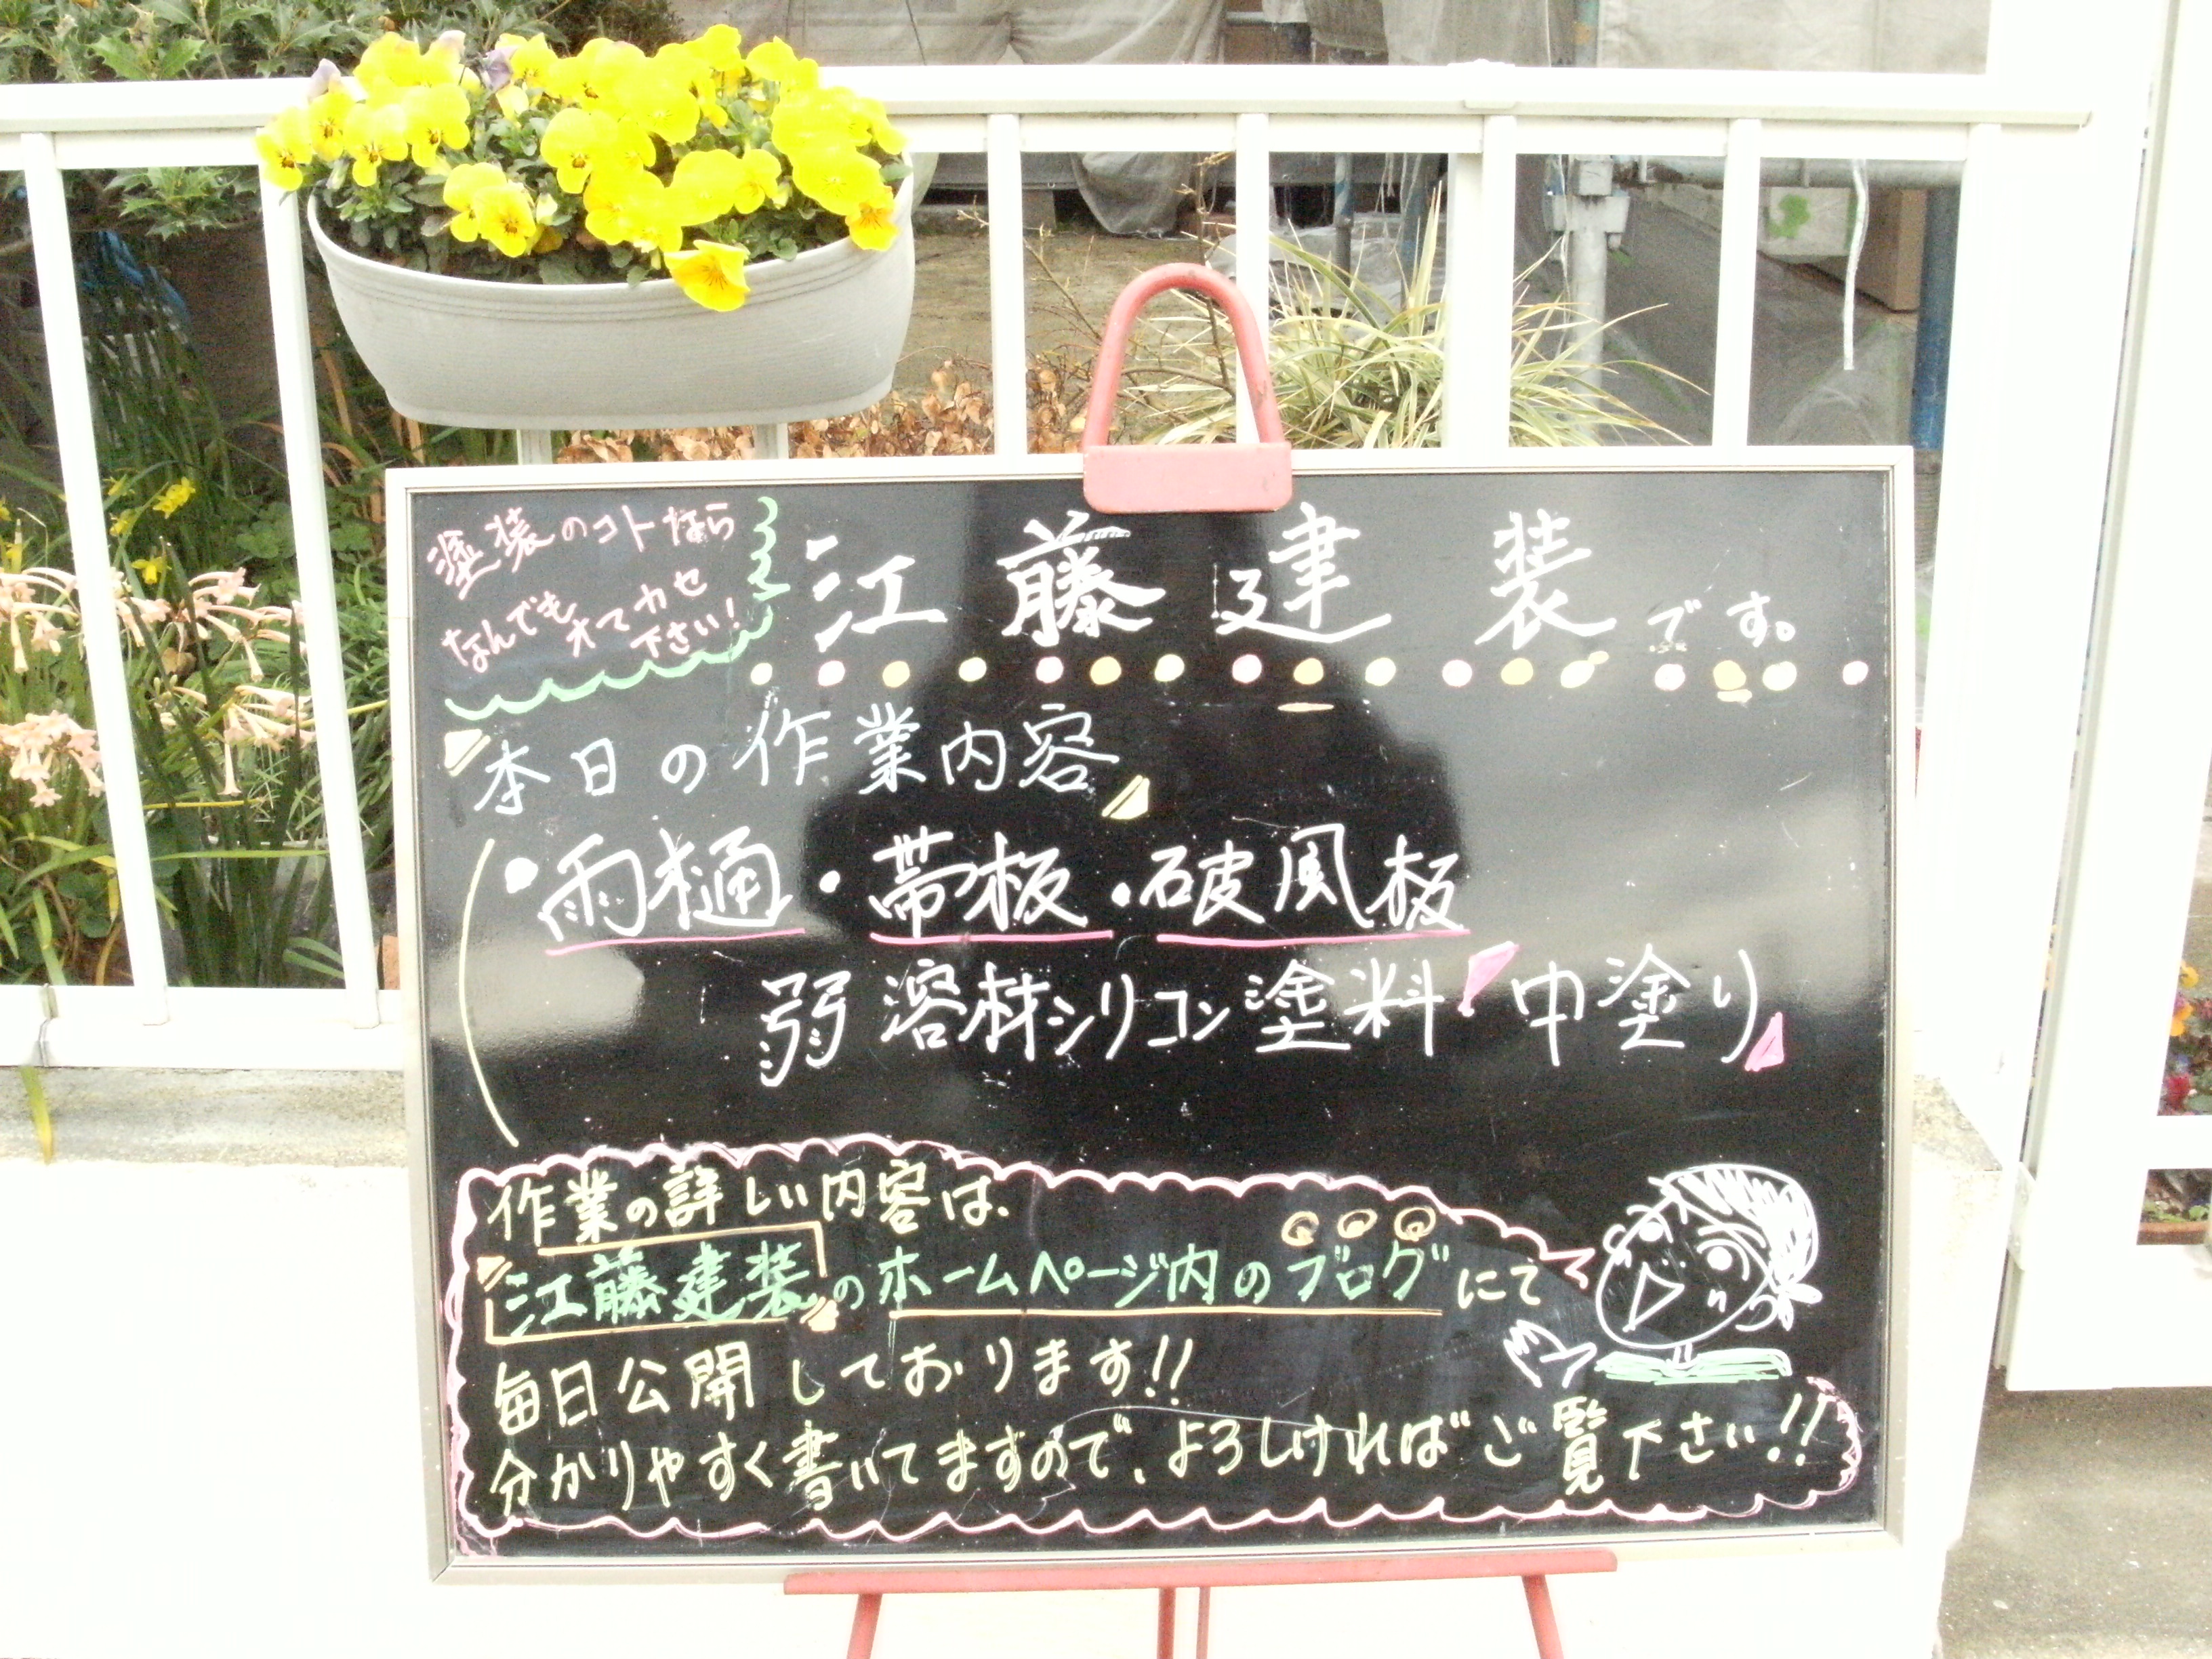 塗装のコトなら
なんでもオマカセ
下さい!
江藤建装です。
本日の作業内容
・雨樋・帯板・破風板
弱溶材シリコン塗料「中塗り」
作業の詳しい内容は、
江藤建装のホームページ内のブログにて
毎日公開しております!!
分かりやすく書いてますので、よろしければご覧下さい!!